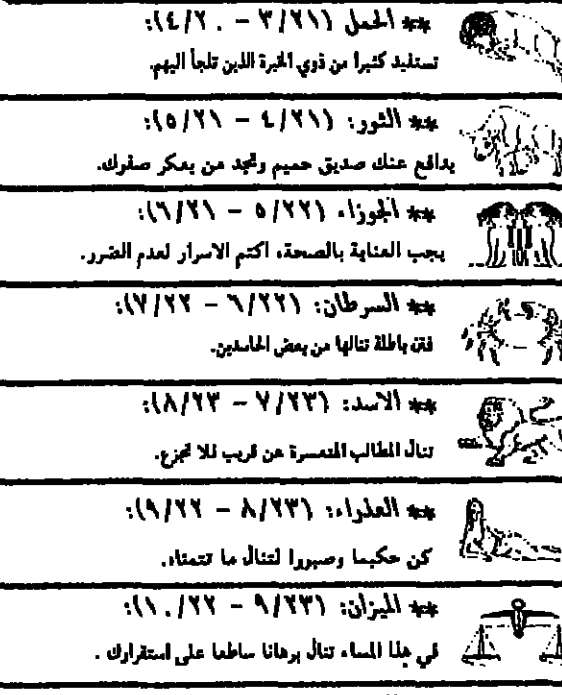 ** الحمل (٣/٢١ - ٤/٢٠):
تستفيد كثيرا من ذوي الخبرة الذين تلجأ اليهم.
** الثور: (٤/٢١ - ٥/٢١):
يدافع عنك صديق حميم وتجد من يعكر صفوك.
** الجوزاء (٥/٢٢ - ٦/٢١):
يجب العناية بالصحة، اكتم الاسرار لعدم الضرر.
** السرطان: (٦/٢٢ - ٧/٢٢):
باطلة تنالها من بعض الحاسدين.
** الاسد: (٧/٢٣ - ٨/٢٣):
تنال المطالب المتعسرة عن قريب فلا تجزع.
** العذراء: (٨/٢٣ - ٩/٢٢):
كن حكيما وصبورا لتنال ما تتمناه.
** الميزان: (٩/٢٣ - ١٠/٢٢):
في هذا المساء تنال برهانا ساطعا على استقرارك.